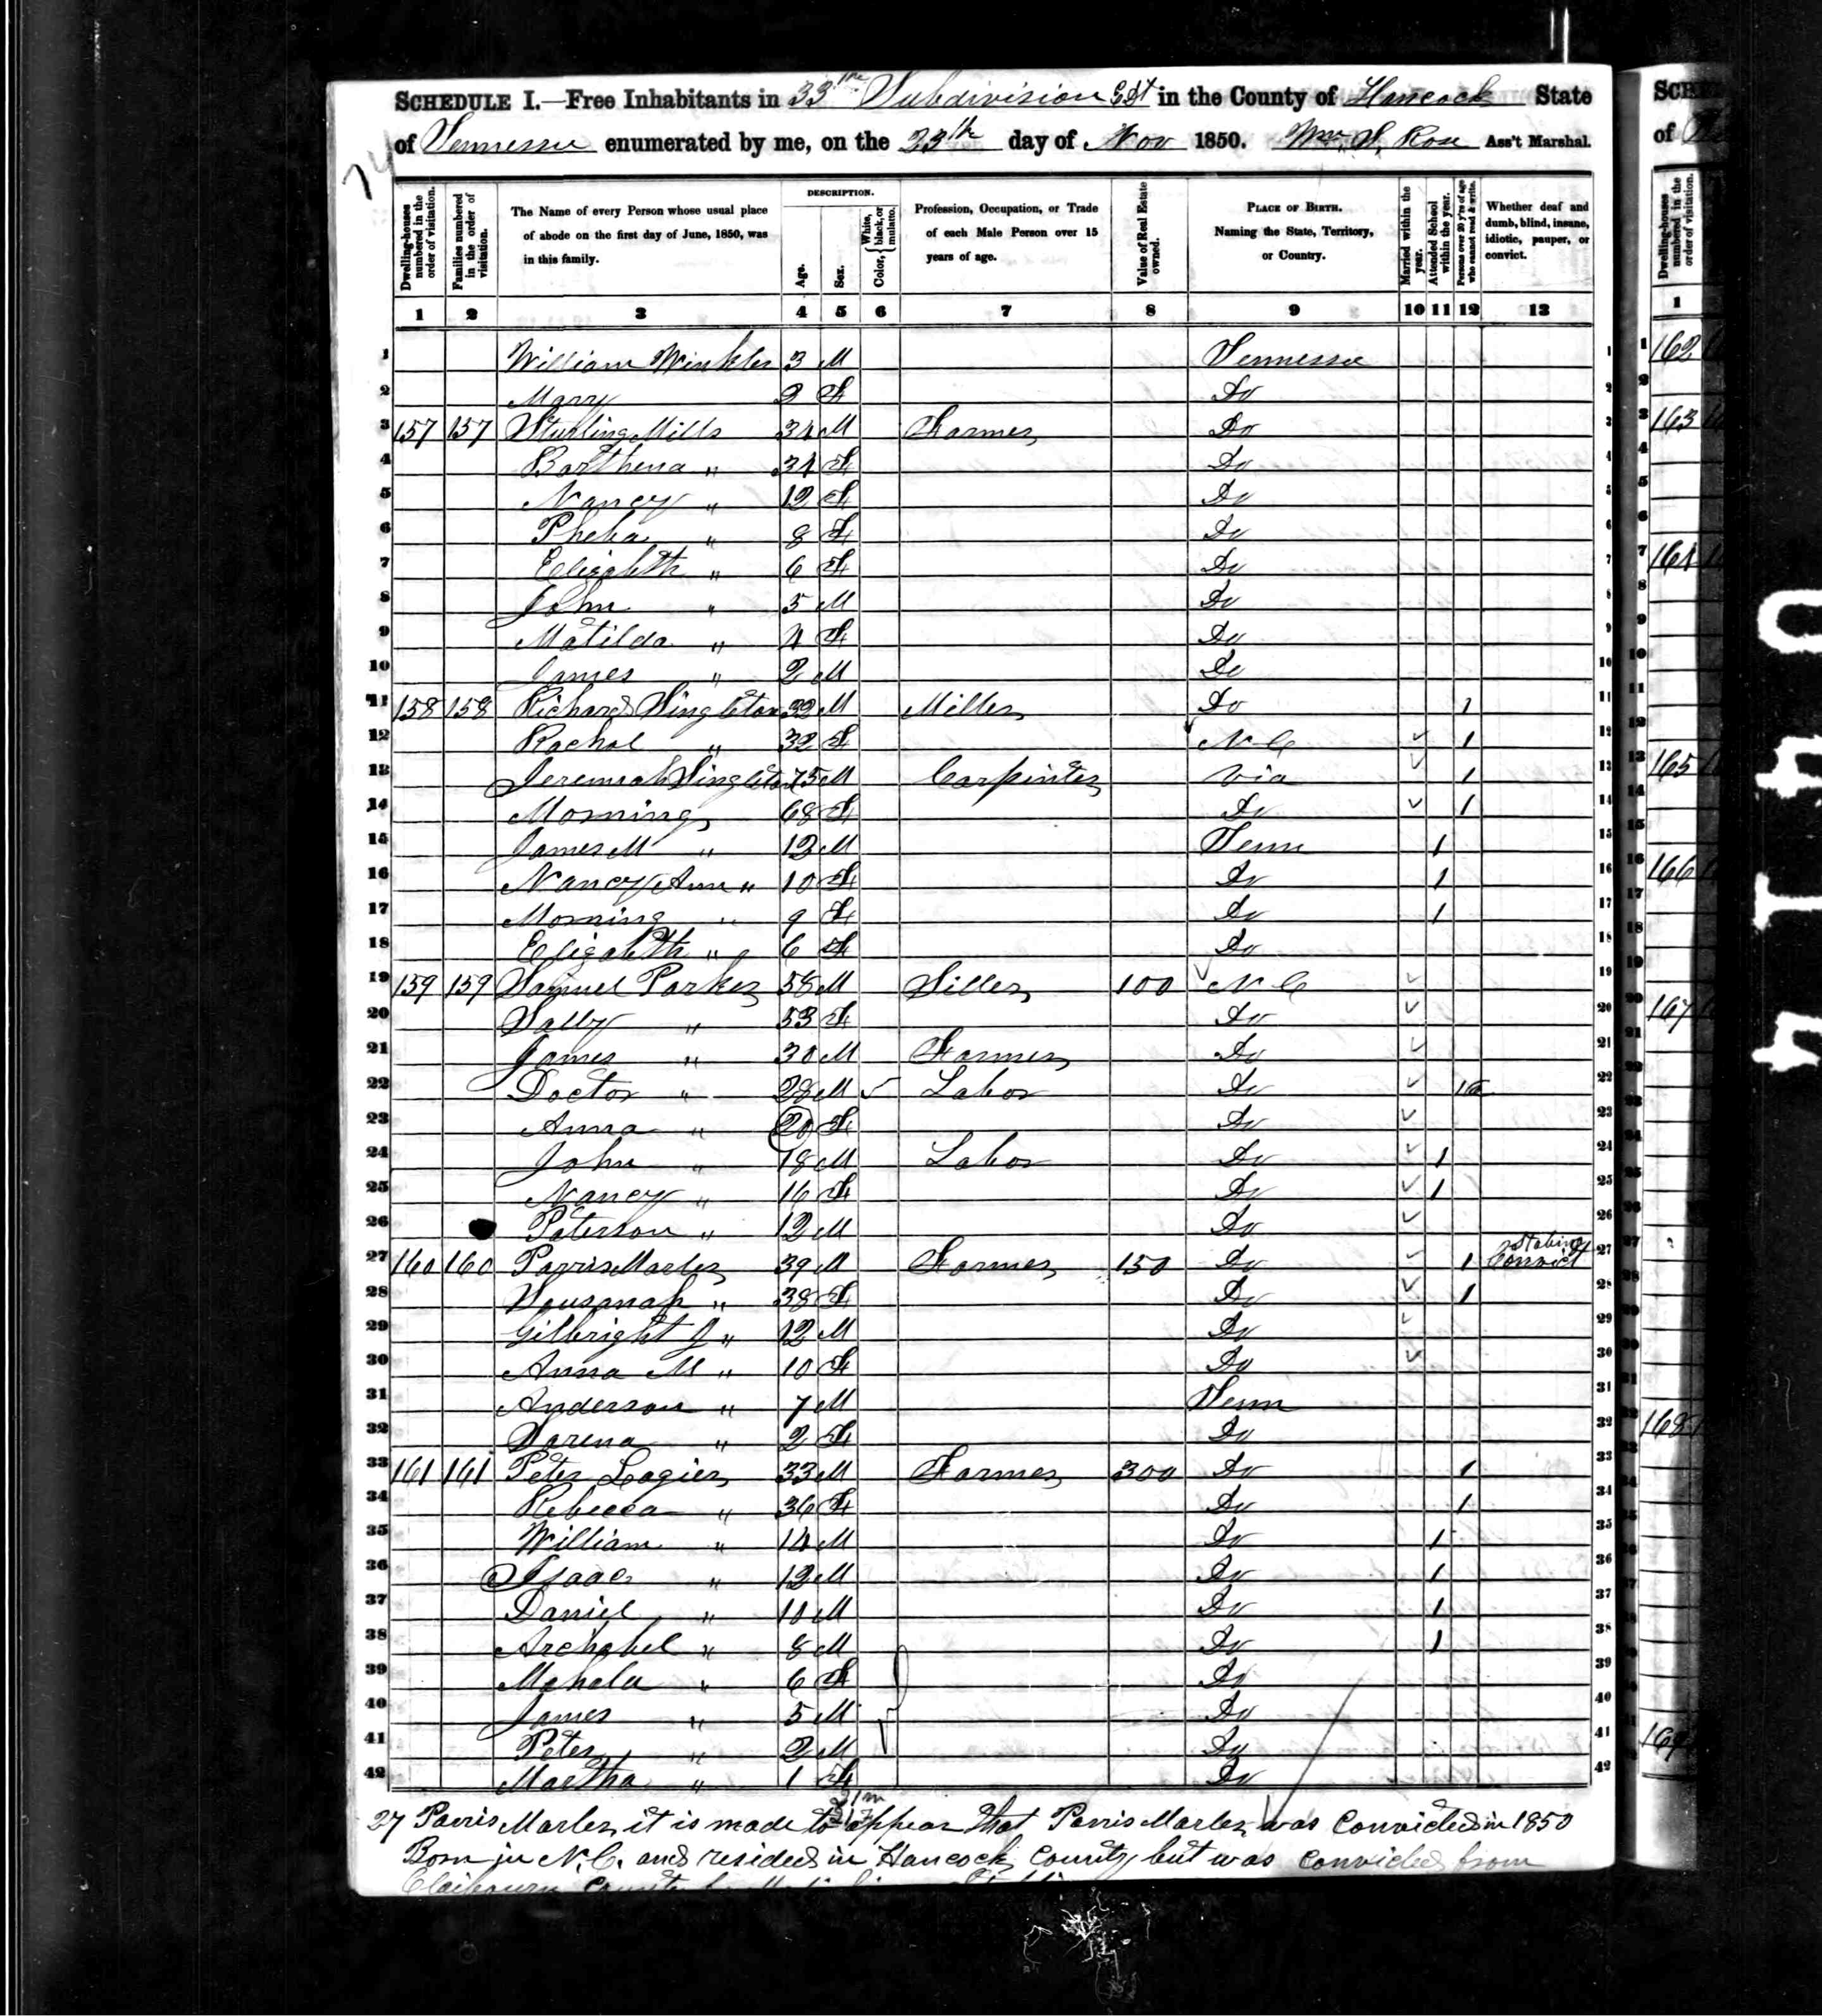 SCHEDULE I.—Free Inhabitants in 33 Subdivision in the County of Hancock State
of Tennessee enumerated by me, on the 23th day of Nov 1850. Wm S. Rose Ass't Marshal.
Dwelling-houses numbered in the order of visitation.
Families numbered in the order of visitation.
The Name of every Person whose usual place of abode on the first day of June, 1850, was in this family.
DESCRIPTION.
Age.
Sex.
Color, { White, black, or mulatto.
Profession, Occupation, or Trade of each Male Person over 15 years of age.
Value of Real Estate owned.
PLACE OF BIRTH. Naming the State, Territory, or Country.
Married within the year.
Attended School within the year.
Persons over 20 y'rs of age who cannot read & write.
Whether deaf and dumb, blind, insane, idiotic, pauper, or convict.
1 2 3 4 5 6 7 8 9 10 11 12 13
1 William Winkler 3 M Tennessee 1
2 Mary F Do 2
3 157 157 Sturling Mills 34 M Farmer Do 3
4 Barthena " 34 F Do 4
5 Nancy " 12 F Do 5
6 " 8 F Do 6
7 Elizabeth " 6 F Do 7
8 John " 5 M Do 8
9 Matilda " 4 F Do 9
10 James " 2 M Do 10
11 158 158 Richard Singleton M Miller Do 1 11
12 Rachel " 32 F N C 1 12
13 Jeremiah Singleton 75 M Carpinter Via 1 13
14 Morning 68 F Do 1 14
15 James M " 12 M Tenn 1 15
16 Nancy Ann " 10 F Do 1 16
17 Morning " 9 F Do 1 17
18 Elizabeth " 6 F Do 18
19 159 159 Samuel Parker 58 M 100 N C 19
20 Sally " 53 F Do 20
21 James " 30 M Farmer Do 21
22 Doctor " 28 M Labor Do 22
23 Anna " 20 F Do 23
24 John " 18 M Labor Do 1 24
25 Nancy " 16 F Do 1 25
26 Paterson " 12 M Do 26
27 160 160 Parris Marler 39 M Farmer 150 Do 1 Stabing Convict 27
28 Sousanah " 38 F Do 1 28
29 Gilbright J " 12 M Do 29
30 Anna M " 10 F Do 30
31 Anderson " 7 M Tenn 31
32 Darena " 2 F Do 32
33 161 161 Peter Lagier 33 M Farmer 300 Do 1 33
34 Rebecca " 36 F Do 1 34
35 William " 14 M Do 1 35
36 Isaac " 12 M Do 1 36
37 Daniel " 10 M Do 1 37
38 Archabel " 8 M Do 1 38
39 Mahala " 6 F Do 39
40 James " 5 M Do 40
41 Peter " 2 M Do 41
42 Martha " 1 F Do 42
27 Parris Marler it is made to appear that Parris Marler was Convicted in 1850
Born in N.C. and resided in Hancock County but was convicted from
162
163
164
165
166
167
168